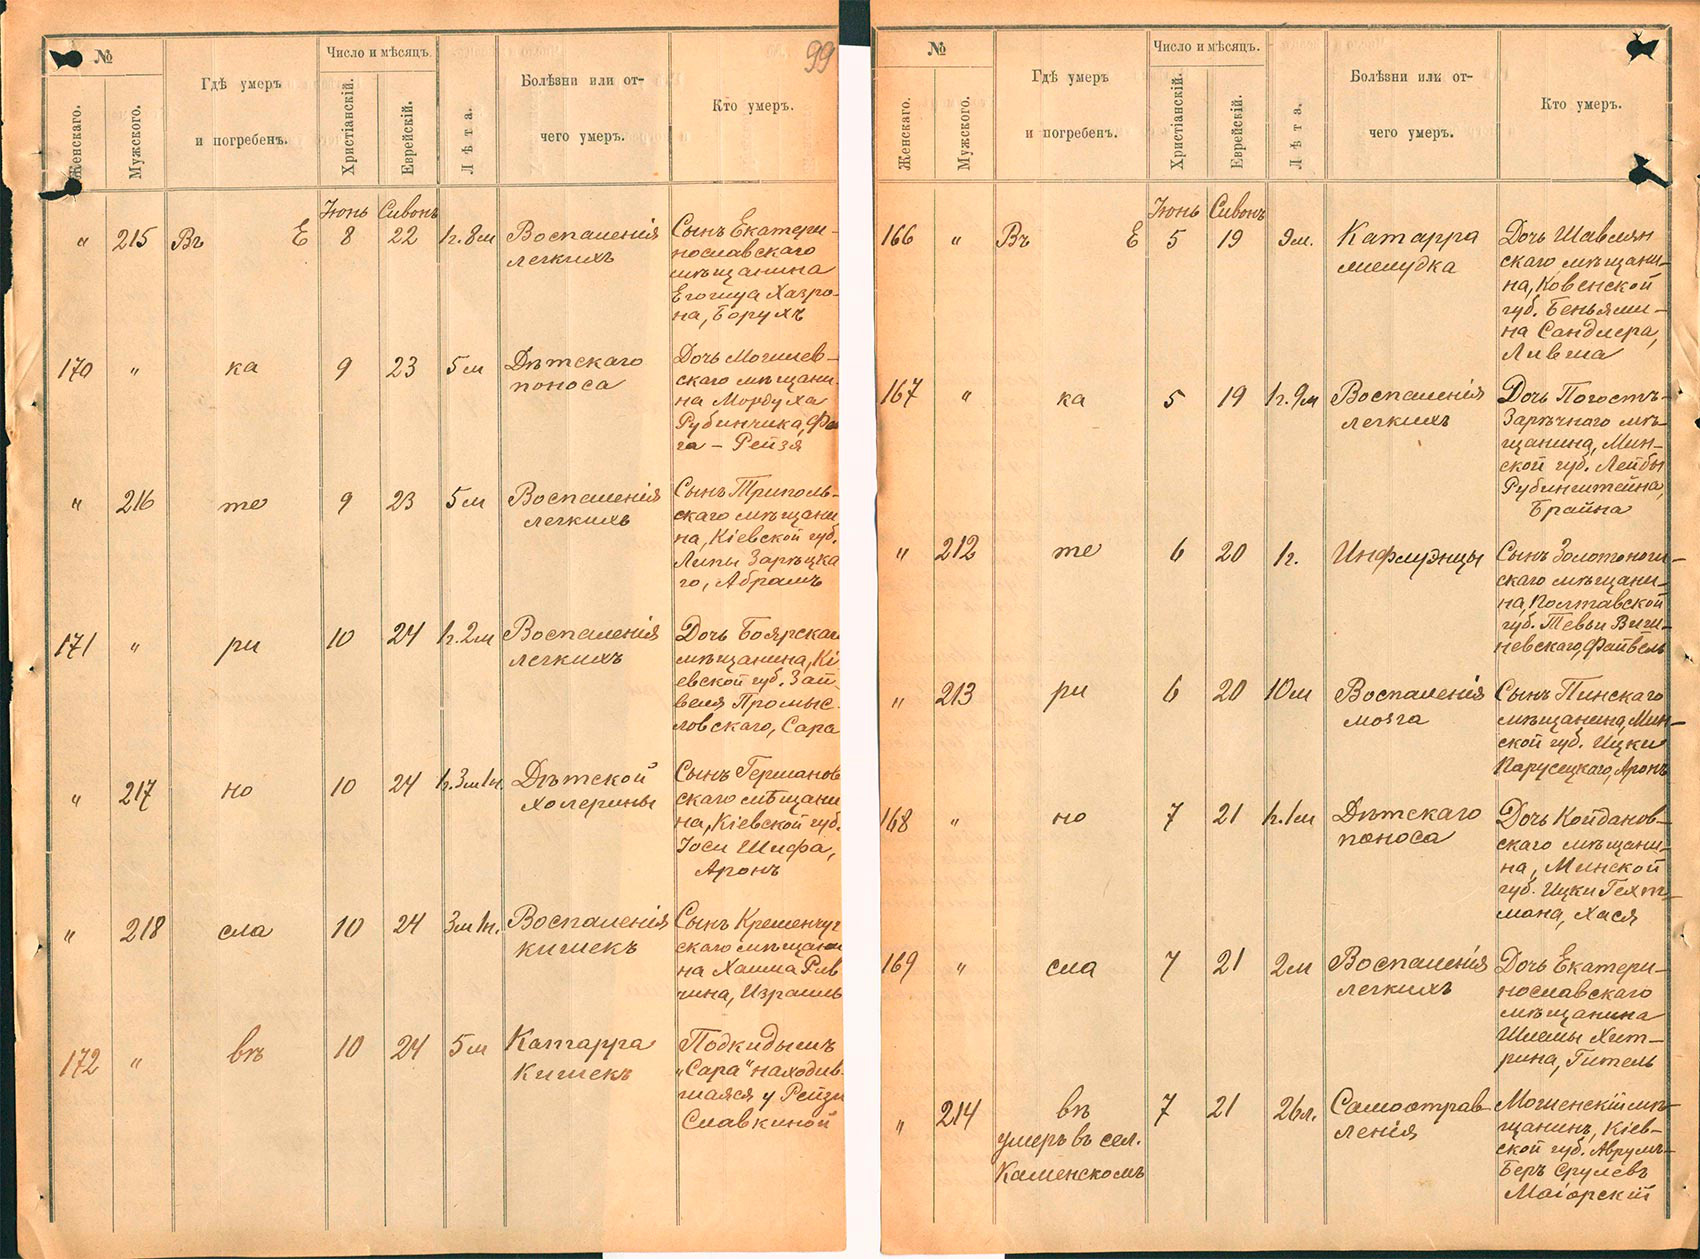 99
№
Женскаго.
Мужского.
Гдѣ умеръ
и погребенъ.
Число и мѣсяцъ.
Христіанскій.
Еврейскій.
Лѣта.
Болѣзни или от-
чего умеръ.
Кто умеръ.
Іюнь Сивонъ
" 215 Въ Е 8 22 1г. 8м Воспаленія
легкихъ
Сынъ Екатери-
нославскаго
мѣщанина
Егошуа Хазро-
на, Борухъ
170 " ка 9 23 5м Дѣтскаго
поноса
Дочь Могилев-
скаго мѣщани-
на Мордуха
Рубинчика,
га - Рейзя
" 216 те 9 23 5м Воспаленія
легкихъ
Сынъ Триполь-
скаго мѣщани
на, Кіевской губ.
Липы Зарѣцка
го, Абрамъ
171 " ри 10 24 1г. 2м Воспаленія
легкихъ
Дочь Боярскаго
мѣщанина, Кі
евской губ. Зай-
веля Промыс-
ловскаго, Сара
" 217 но 10 24 1г. 3м 1н. Дѣтской
холерины
Сынъ Германов
скаго мѣщани
на, Кіевской губ.
Іоси Шифа,
Аронъ
" 218 сла 10 24 3м 1н. Воспаленія
кишекъ
Сынъ Кременчуг
скаго мѣщани
на Хаима Рив
чина, Израиль
172 " въ 10 24 5м Катарра
кишекъ
Подкидышъ
"Сара" находив-
шаяся у Рейзи
Славкиной
№
Женскаго.
Мужского.
Гдѣ умеръ
и погребенъ.
Число и мѣсяцъ.
Христіанскій.
Еврейскій.
Лѣта.
Болѣзни или от-
чего умеръ.
Кто умеръ.
Іюнь Сивонъ
166 " Въ Е 5 19 9м. Катарра
желудка
Дочь Шавлян
скаго мѣщани-
на, Ковенской
губ. Беньями-
на Сандлера,
Ливша
167 " ка 5 19 1г. 9м Воспаленія
легкихъ
Дочь Погостъ-
Зарѣчнаго мѣ-
щанина, Мин-
ской губ. Лейбы
Рубинштейна,
Брайна
" 212 те 6 20 1г. Инфлуэнцы
Сынъ Золотоноги-
скаго мѣщани-
на, Полтавской
губ. Тевьи Виш-
невскаго, Файвель
" 213 ри 6 20 10м Воспаленія
мозга
Сынъ Пинскаго
мѣщанина, Мин-
ской губ. Ицки
Парусецкаго, Аронъ
168 " но 7 21 1г. 1м Дѣтскаго
поноса
Дочь Койданов-
скаго мѣщани-
на, Минской
губ. Ицки Гехт-
мана, Хася
169 " сла 7 21 2м Воспаленія
легкихъ
Дочь Екатери-
нославскаго
мѣщанина
Шлемы Хит-
рина, Гитель
" 214 въ 7 21 26л. Самоотрав
ленія
умеръ въ сел.
Каменскомъ
мѣ-
щанинъ, Кіев-
ской губ. Аврумъ-
Беръ Срулевъ
Маіорскій